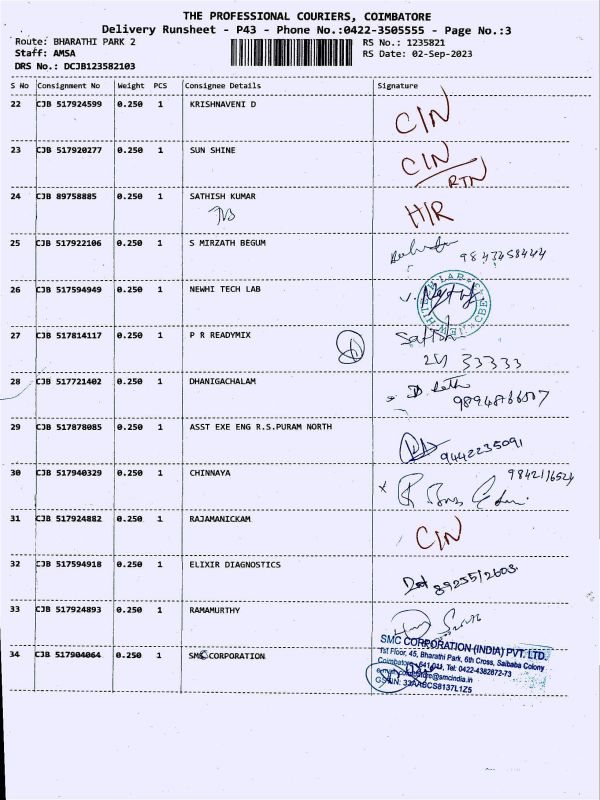 THE PROFESSIONAL COURIERS, COIMBATORE
Delivery Runsheet - P43 - Phone No.:0422-3505555 - Page No.:3
Route: BHARATHI PARK 2 RS No.: 1235821
Staff: AMSA RS Date: 02-Sep-2023
DRS No.: DCJB123582103
S No Consignment No Weight PCS Consignee Details Signature
22 CJB 517924599 0.250 1 KRISHNAVENI D C/N
23 CJB 517920277 0.250 1 SUN SHINE C/N
RTN
24 CJB 89758885 0.250 1 SATHISH KUMAR H/R
25 CJB 517922106 0.250 1 S MIRZATH BEGUM
26 CJB 517594949 0.250 1 NEWHI TECH LAB
27 CJB 517814117 0.250 1 P R READYMIX
33333
28 CJB 517721402 0.250 1 DHANIGACHALAM
29 CJB 517878085 0.250 1 ASST EXE ENG R.S.PURAM NORTH
9442235091
30 CJB 517940329 0.250 1 CHINNAYA
31 CJB 517924882 0.250 1 RAJAMANICKAM C/N
32 CJB 517594918 0.250 1 ELIXIR DIAGNOSTICS
33 CJB 517924893 0.250 1 RAMAMURTHY
34 CJB 517904064 0.250 1 SMC CORPORATION
SMC CORPORATION (INDIA) PVT. LTD.
1st Floor, 45, Bharathi Park, 6th Cross, Saibaba Colony
Coimbatore - 641 011, Tel: 0422-4382872-73
@smcindia.in
33AABCS8137L1Z5